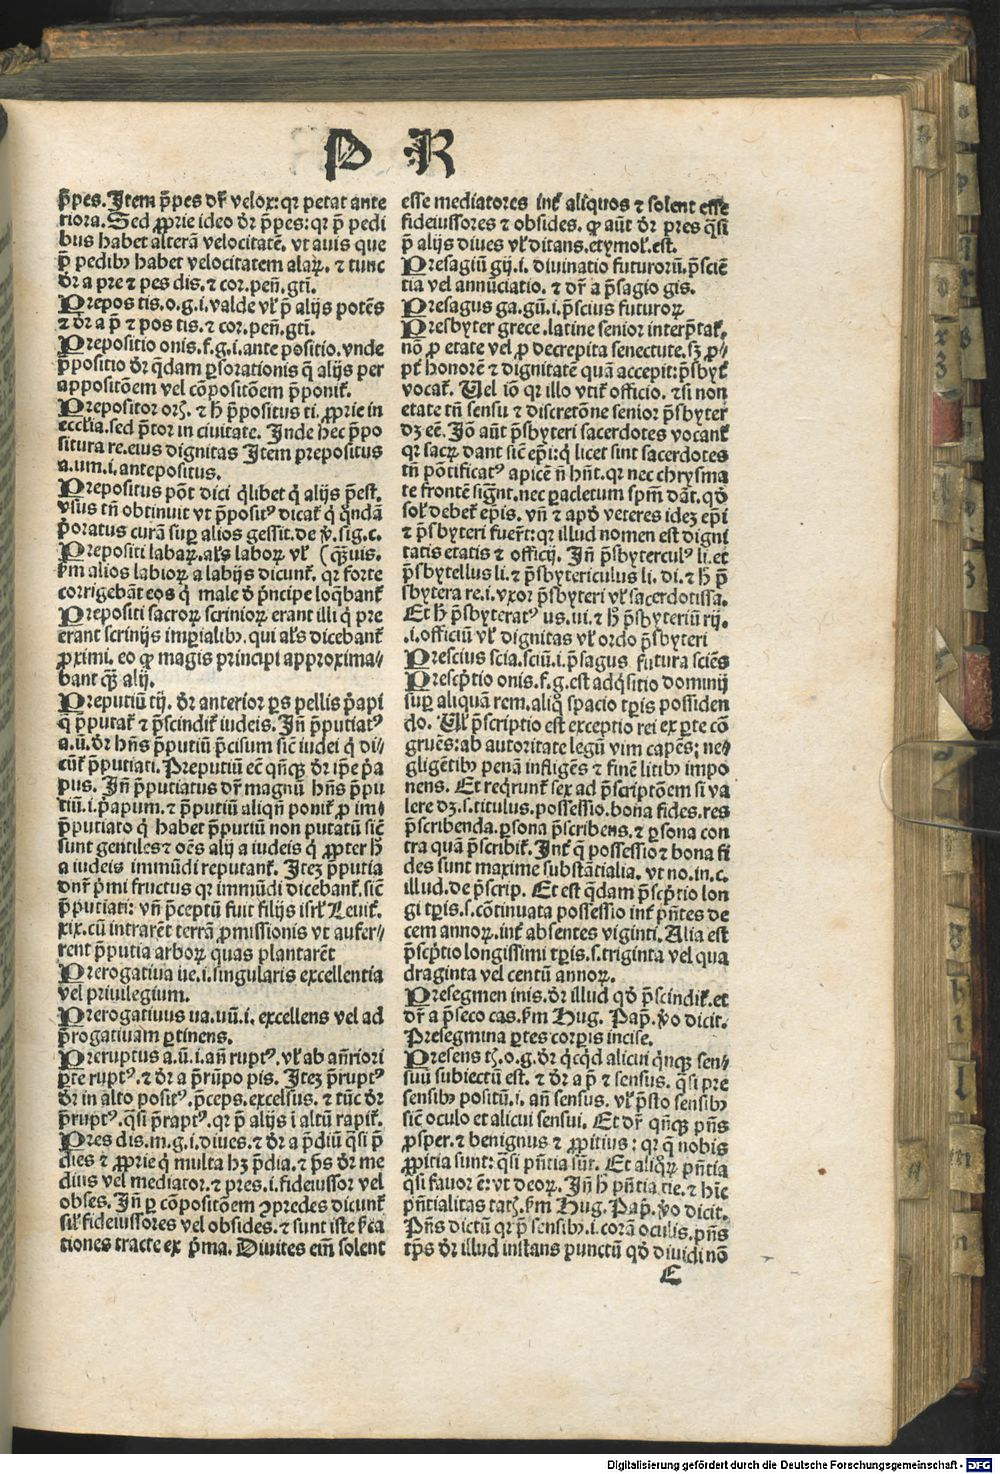 P R
p̄pes. Item p̄pes dr̄ velox: qꝛ petat ante
riora. Sed ꝓprie ideo dr̄ p̄pes: qꝛ p̄ pedi
bus habet alterā velocitatē. vt auis que
p̄ pedibꝫ habet velocitatem alaꝝ. ⁊ tunc
dr̄ a pre ⁊ pes dis. ⁊ cor. pen̄. gt̄i.
Prepos tis. o. g. i. valde vł p̄ alijs potēs
⁊ dr̄ a p̄ ⁊ pos tis. ⁊ cor. pen̄. gt̄i.
Prepositio onis. f. g. i. ante positio. vnde
p̄positio dr̄ q̄dam ꝑs orationis q̄ alijs per
appositōem vel cōpositōem p̄ponit̄.
Prepositor oꝛꝭ. ⁊ h̄ p̄positus ti. ꝓprie in
eccl̄ia. sed p̄tor in ciuitate. Inde hec p̄po
situra re. eius dignitas Item prepositus
a. um. i. antepositus.
Prepositus pōt dici q̇libet q̇ alijs p̄est.
vsus tn̄ obtinuit vt p̄positꝰ dicat̄ q̇ q̄ndā
p̄oratus curā suꝑ alios gessit. de v̄. sig. c.
Prepositi labaꝝ. al̄s laboꝝ vł (q̄ꝫuis.
km̄ alios labioꝝ a labijs dicunt̄. qꝛ forte
corrigebāt eos q̇ male d̄ p̄ncipe loq̄bant̄
Prepositi sacroꝝ scrinioꝝ erant illi q̇ pre
erant scrinijs imꝑialibꝫ. qui al̄s dicebant̄
ꝓximi. eo ꝙ magis principi approxima⸗
bant q̄ꝫ alij.
Preputiū tij. dr̄ anterior ꝑs pellis p̄api
q̄ p̄putat̄ ⁊ p̄scindit̄ iudeis. In̄ p̄putiatꝰ
a. ū. dr̄ hn̄s p̄putiū p̄cisum sic̄ iudei q̇ di⸗
cūt̄ p̄putiati. Preputiū eē qn̄qꝫ dr̄ ip̄e p̄a
pus. In̄ p̄putiatus dr̄ magnū hn̄s p̄pu
tiū. i. p̄apum. ⁊ p̄putiū aliqn̄ ponit̄ ꝓ im⸗
p̄putiato q̇ habet p̄putiū non putatū sic̄
sunt gentiles ⁊ oēs alij a iudeis q̇ ꝓpter h̄
a iudeis immūdi reputant̄. Iteꝫ p̄putia
dn̄r p̄mi fructus qꝛ immūdi dicebant̄. sic̄
p̄putiati: vn̄ p̄ceptū fuit filijs isrł Leuit̄.
xix. cū intrarēt terrā ꝓmissionis vt aufer⸗
rent p̄putia arboꝝ quas plantarēt
Prerogatiua ue. i. singularis excellentia
vel priuilegium.
Prerogatiuus ua. uū. i. excellens vel ad
p̄rogatiuam ꝑtinens.
Preruptus a. ū. i. an̄ ruptꝰ. vł ab an̄riori
ꝑte ruptꝰ. ⁊ dr̄ a p̄rūpo pis. Iteꝫ p̄ruptꝰ
dr̄ in alto positꝰ. p̄ceps. excelsus. ⁊ tūc dr̄
p̄ruptꝰ. q̄si p̄raptꝰ. qꝛ p̄ alijs i altū rapit̄.
Pres dis. m. g. i. diues. ⁊ dr̄ a p̄diū q̄si p̄
dies ⁊ ꝓprie q̇ multa hꝫ p̄dia. ⁊ p̄s dr̄ me
dius vel mediator. ⁊ pres. i. fideiussor vel
obses. In̄ ꝑ cōpositōem ꝯpredes dicunt̄
sił fideiussores vel obsides. ⁊ sunt iste
tiones tracte ex p̄ma. Diuites em̄ solent
esse mediatores int̄ aliquos ⁊ solent esse
fideiussores ⁊ obsides. ꝙ aūt dr̄ pres q̄si
p̄ alijs diues vł ditans. etymoł. est.
Presagiū gij. i. diuinatio futuroꝝ. p̄sciē
tia vel annūciatio. ⁊ dr̄ a p̄sagio gis.
Presagus ga. gū. i. p̄scius futuroꝝ
Presbyter grece. latine senior interp̄tat̄.
nō ꝓ etate vel ꝓ decrepita senectute. sꝫ ꝓ⸗
pt̄ honorē ⁊ dignitatē quā accepit: p̄sbyt̄
vocat̄. Uel iō qꝛ illo vtit̄ officio. ⁊ si non
etate tn̄ sensu ⁊ discretōne senior p̄sbyter
dꝫ eē. Iō aūt p̄sbyteri sacerdotes vocant̄
qꝛ sacꝝ dant sic̄ ep̄i: q̇ licet sint sacerdotes
tn̄ pōtificatꝰ apicē n̄ hn̄t. qꝛ nec chrysma
te frontē sigt̄nt. nec ꝑacletum sp̄m dāt. qd̄
soł debet̄ ep̄is. vn̄ ⁊ apd̄ veteres ideꝫ ep̄i
⁊ p̄sbyteri fuer̄t: qꝛ illud nomen est digni
tatis etatis ⁊ officij. In̄ p̄sbyterculꝰ li. et
p̄sbytellus li. ⁊ p̄sbytericulus li. di. ⁊ h̄ p̄
sbytera re. i. vxor p̄sbyteri vł sacerdotissa.
Et h̄ p̄sbyteratꝰ us. ui. ⁊ h̄ p̄sbyteriū rij.
.i. officiū vł dignitas vł ordo p̄sbyteri
Prescius scia. sciū. i. p̄sagus futura sciēs
Prescp̄tio onis. f. g. est adq̇sitio dominij
suꝑ aliquam rem. aliq̊ spacio tꝑis possiden
do. Ul̄ p̄scriptio est exceptio rei ex ꝑte cō
gruēs: ab autoritate legū vim capēs; ne⸗
gligētibꝫ penā infligēs ⁊ finē litibꝫ impo
nens. Et reqrunt̄ sex ad p̄scriptōem si va
lere dꝫ. s. titulus. possessio. bona fides. res
p̄scribenda. ꝑsona p̄scribens. ⁊ ꝑsona con
tra quā p̄scribit̄. Int̄ q̄ possessio ⁊ bona fi
des sunt maxime substātialia. vt no. in. c.
illud. de p̄scrip. Et est q̄dam p̄scp̄tio lon
gi tꝑis. s. cōtinuata possessio int̄ p̄ntes de
cem annoꝝ. int̄ absentes viginti. Alia est
p̄scp̄tio longissimi tꝑis. s. triginta vel qua
draginta vel centū annoꝝ.
Presegmen inis. dr̄ illud qd̄ p̄scindit̄. et
dr̄ a p̄seco cas. km̄ Hug. Pap̄. v̄o dicit.
Presegmina ꝑtes corꝑis incise.
Presens tꝭ. o. g. dr̄ q̇cq̇d alicui q̇nqꝫ sen⸗
suū subiectū est. ⁊ dr̄ a p̄ ⁊ sensus. q̄si pre
sensibꝫ positū. i. an̄ sensus. vł p̄sto sensibꝫ
sic̄ oculo et alicui sensui. Et dr̄ qn̄qꝫ p̄ns
ꝓsper. ⁊ benignus ⁊ ꝓpitius: qꝛ q̄ nobis
ꝓpitia sunt: q̄si p̄ntia sūt. Et aliq̄ꝝ p̄ntia
q̄si fauor ē: vt deoꝝ. In̄ h̄ p̄ntia tie. ⁊ hīc
p̄ntialitas tatꝭ. km̄ Hug. Pap̄. v̄o dicit.
Pn̄s dictū qꝛ p̄ sensibꝫ. i. corā oculis. p̄ns
tp̄s dr̄ illud instans punctū qd̄ diuidi nō
E
Digitalisierung gefördert durch die Deutsche Forschungsgemeinschaft - DFG